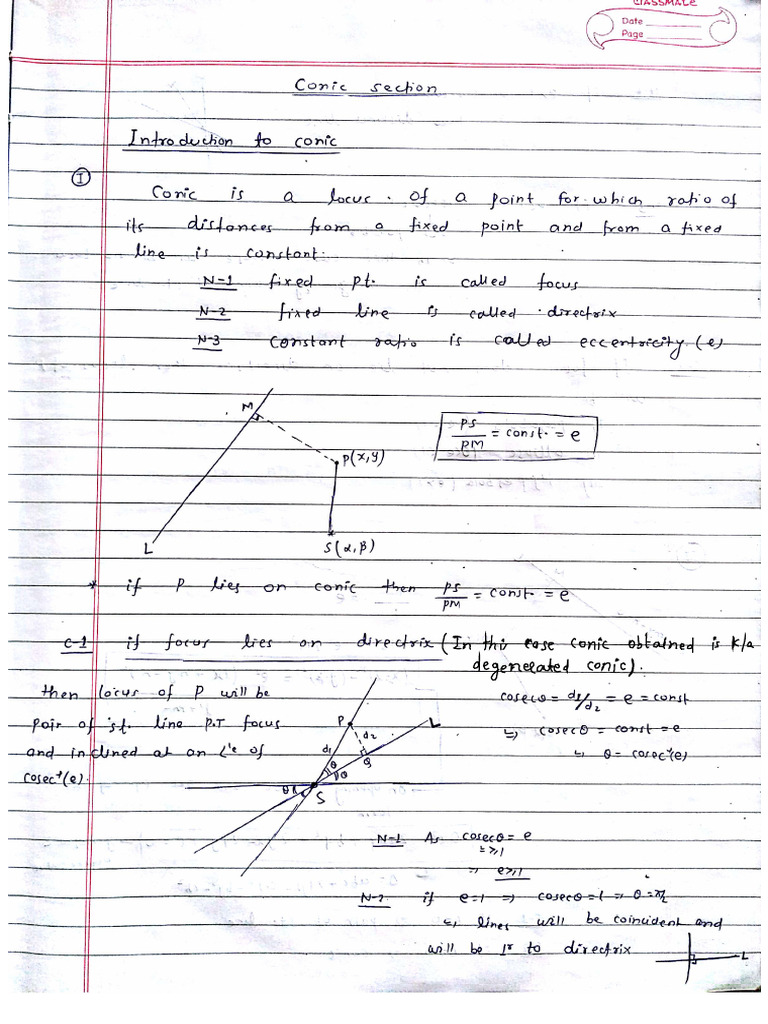 classmate
Date
Page
Conic section
Introduction to conic
I
Conic is a locus of a point for which ratio of
its distances from a fixed point and from a fixed
line is constant.
N-1 fixed pt. is called focus
N-2 fixed line is called directrix
N-3 constant ratio is called eccentricity (e)
M
PS/PM = const. = e
P(x,y)
L
S(α,β)
* if P lies on conic then PS/PM = const. = e
C-1 if focus lies on directrix (In this case conic obtained is k/a
degenerated conic).
then locus of P will be
pair of st. line P.T focus
and inclined at an L'e of
cosec⁻¹(e).
P
d1
d2
L
θ
θ
Q
θ
S
cosecθ = d1/d2 = e = const
↳ cosecθ = const = e
↳ θ = cosec⁻¹(e)
N-1 As cosecθ = e
≥1
⇒ e≥1
N-2 if e=1 ⇒ cosecθ=1 ⇒ θ=π/2
↳ lines will be coincident and
will be 1r to directrix
L